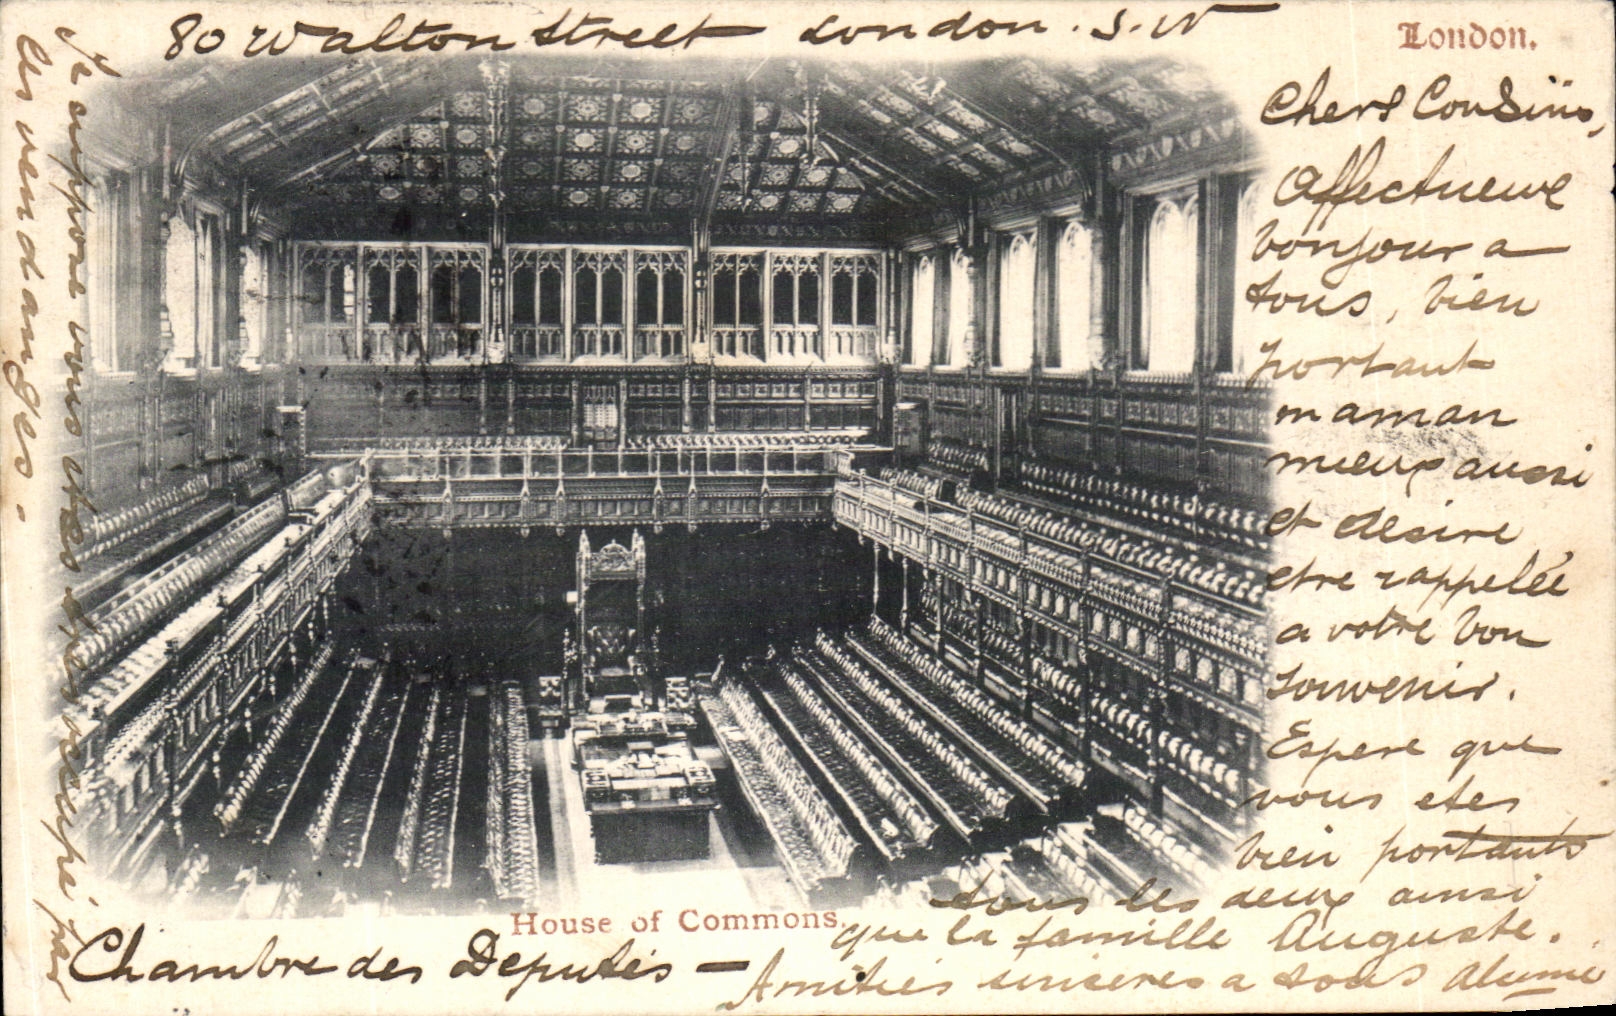 80 Walton Street London. S.W
London.
Chers Cousins,
Affectueux
bonjour a
tous, bien
portant
maman
mieux aussi
et desire
etre rappelée
a votre bon
souvenir.
Espere que
vous etes
bien portants
tous les deux ainsi
que la famille Auguste.
Amitiés sinceres a tous
House of Commons.
Chambre des Deputés —
Je suppose vous etes tres occupé par
les vendanges.